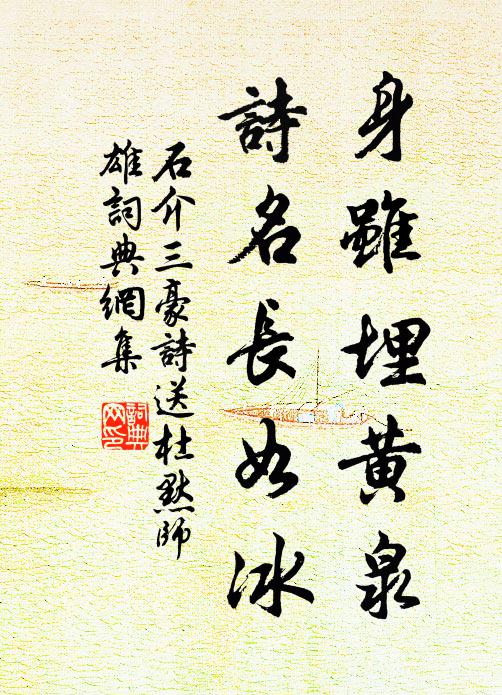 身雖埋黃泉
詩名長如冰
石介三豪詩送杜默師
雄詞典網集
詞典
网印